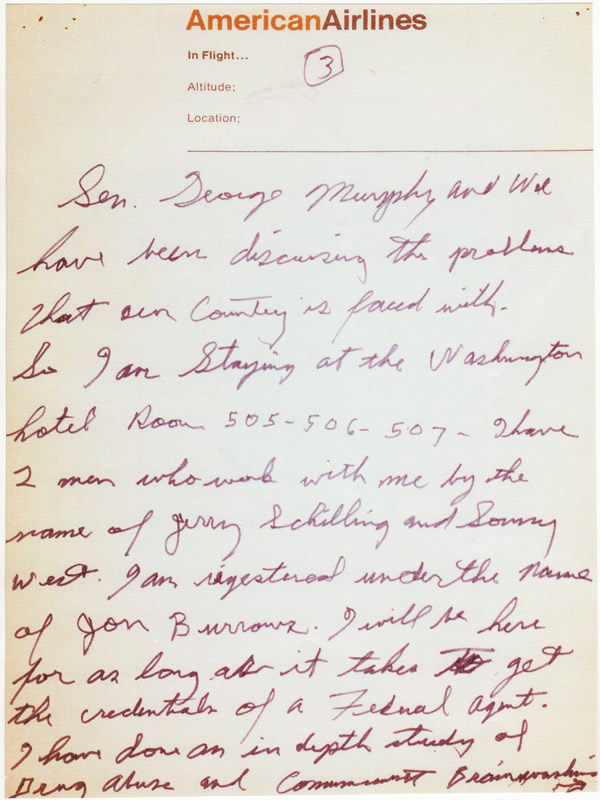 AmericanAirlines
In Flight...
3
Altitude;
Location;
Sen. George Murphy and We
have been discussing the problems
that our Country is faced with.
So I am Staying at the Washington
hotel Room 505-506-507- I have
2 men who work with me by the
name of Jerry Schilling and Sonny
West. I am registered under the name
of Jon Burrows. I will be here
for as long as it takes to get
the credentials of a Federal Agent.
I have done an in depth study of
Drug Abuse and Communist Brainwashing